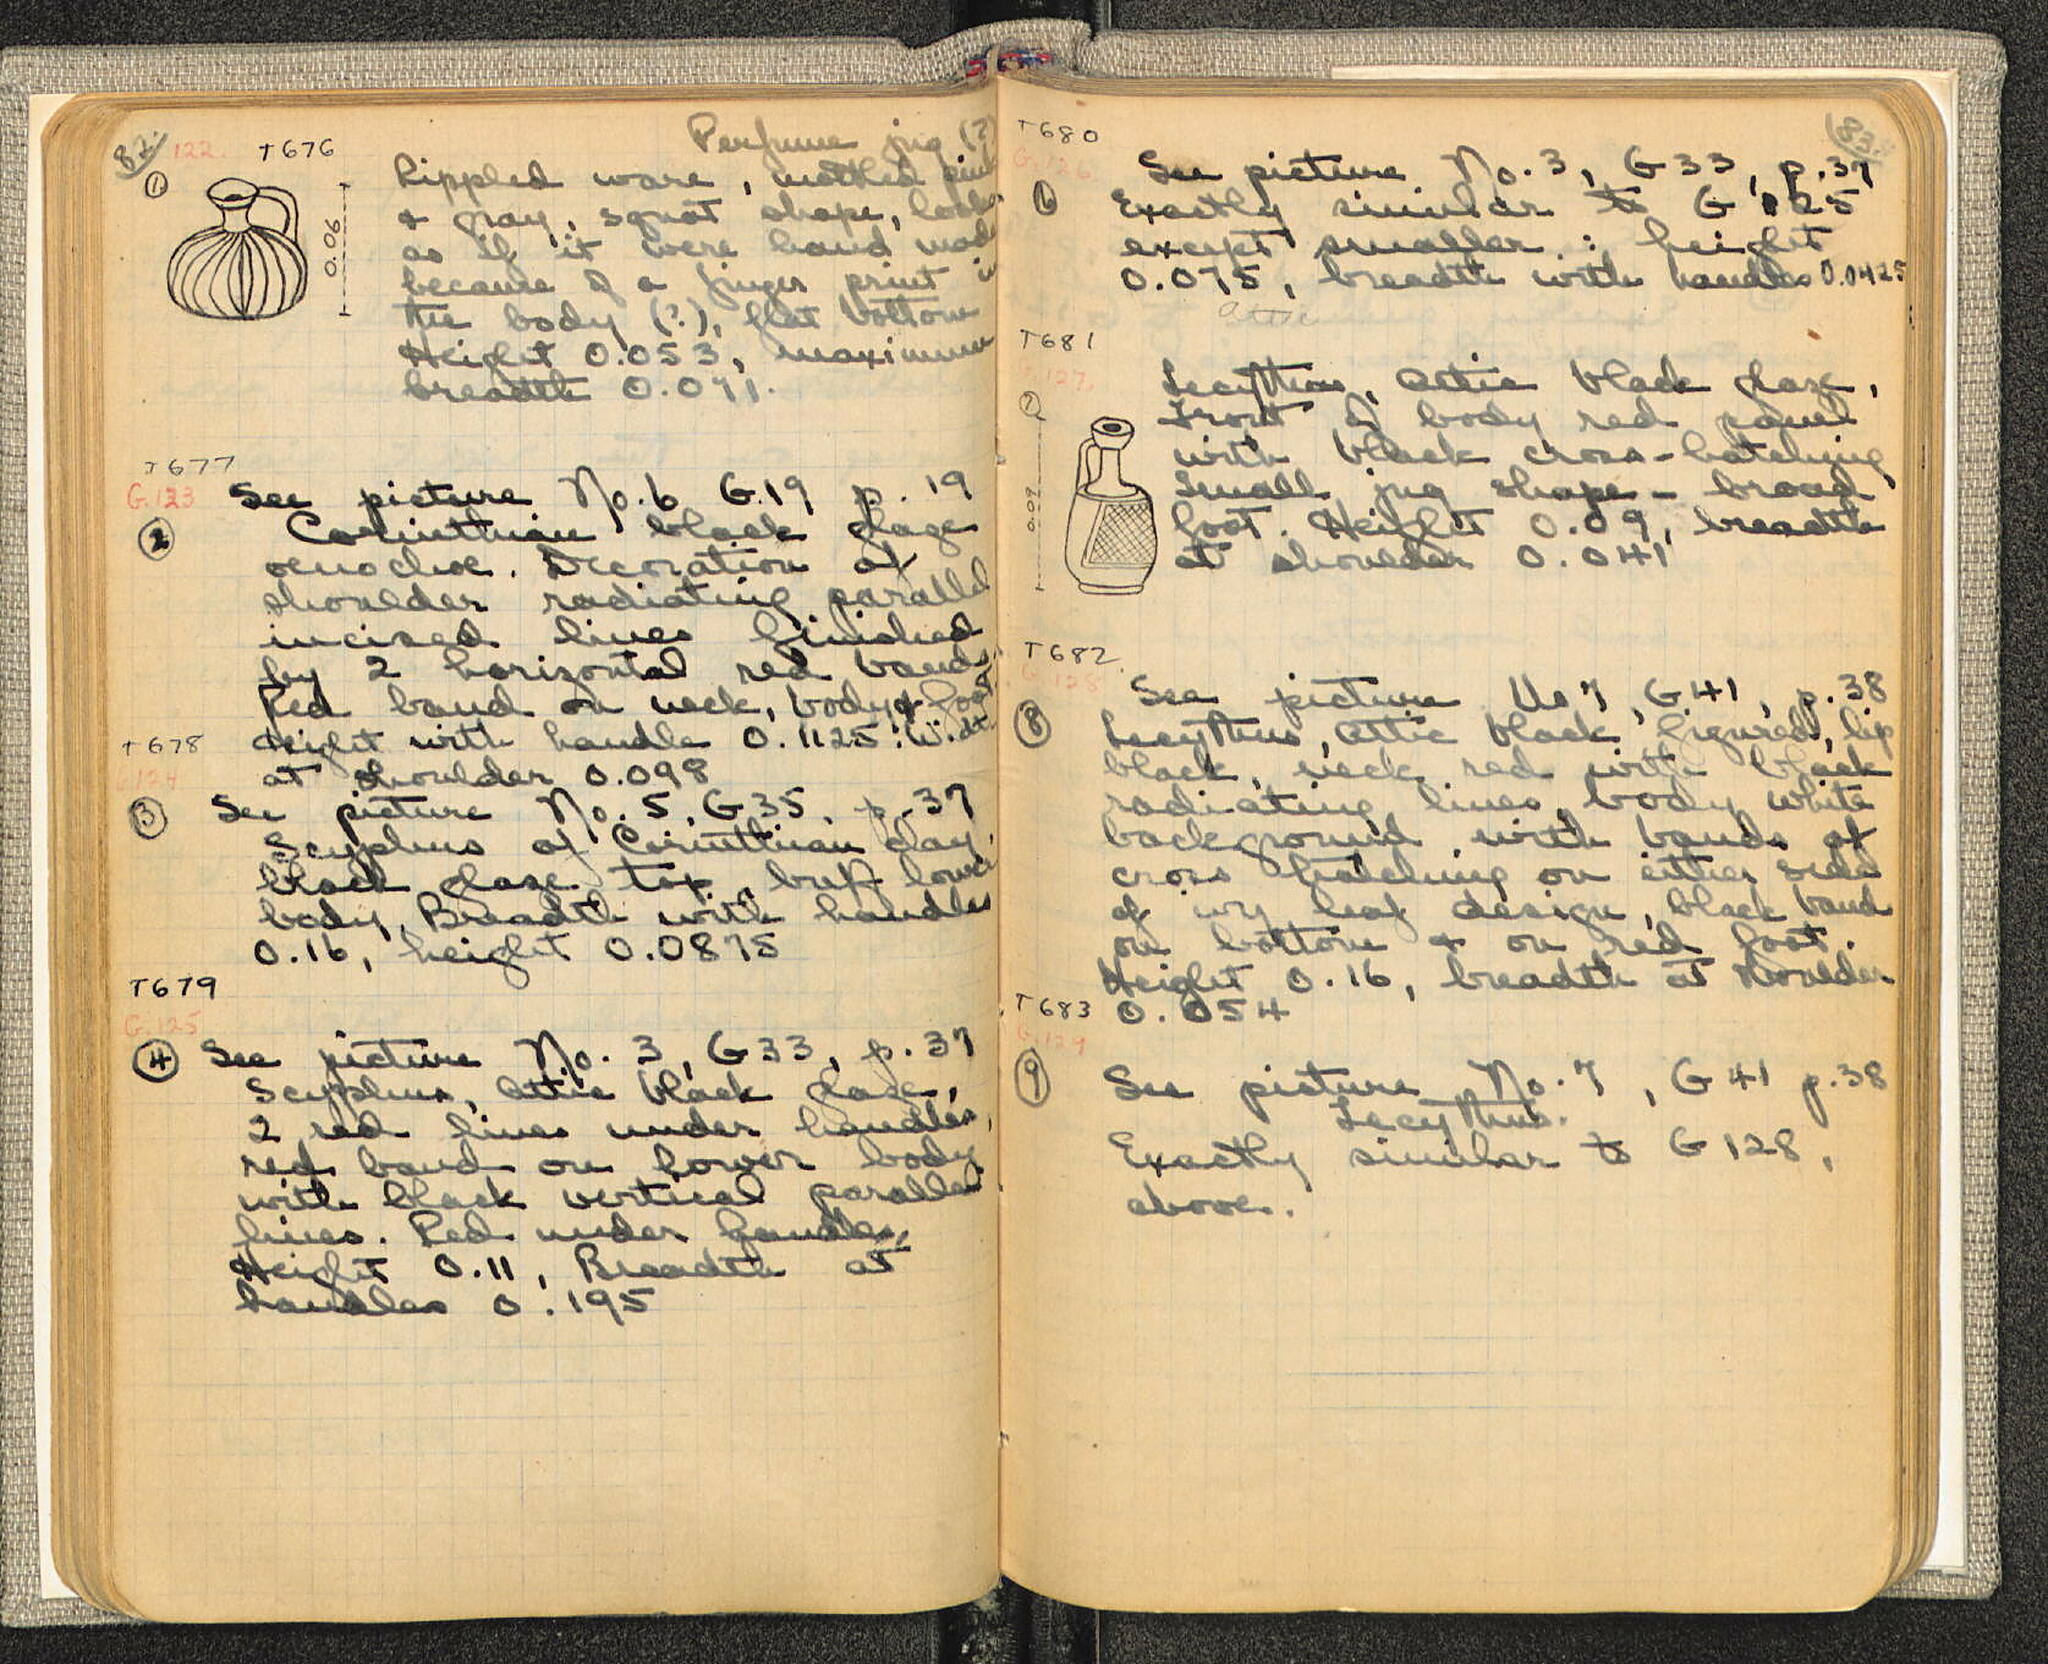 82.
122.
T676
Perfume jug (?)
1.
Rippled ware, mottled pink
& gray, squat shape, looks
as if it were hand made
because of a finger print in
the body (?), flat bottom
Height 0.053, maximum
breadth 0.071.
0.06
T677
G.123
See picture No. 6 G.19 p. 19
2
Corinthian black glaze
oenochoe. Decoration of
shoulder radiating parallel
incised lines finished
by 2 horizontal red bands,
Red band on neck, body & foot
Height with handle 0.1125: Width
at shoulder 0.098
T678
G124
3
See picture No. 5, G35, p. 37
Scyphus of Corinthian clay,
black glaze top, buff lower
body, Breadth with handles
0.16, height 0.0875
T679
G.125
4
See picture No. 3, G33, p. 37
Scyphus, Attic black glaze,
2 red lines under handles,
red band on lower body
with black vertical parallel
lines. Red under handles,
Height 0.11, Breadth at
handles 0.195
83.
T680
G.126
6
See picture No. 3, G33, p. 37
Exactly similar to G125
except smaller: height
0.075, breadth with handles 0.0425
Attic
T681
G.127.
7
Lecythus, Attic black glaze,
Front of body red panel
with black cross-hatching
Small jug shape - broad
foot. Height 0.09, breadth
at shoulder 0.041
0.09
T682
G.128
8
See picture No 7, G.41, p. 38
Lecythus, Attic black figured, lip
black, neck red with black
radiating lines, body white
background with bands of
cross hatching on either side
of ivy leaf design, black band
on bottom & on red foot.
Height 0.16, breadth at shoulder
0.054
T683
G.129
9
See picture No. 7, G41 p. 38
Lecythus.
Exactly similar to G128,
above.